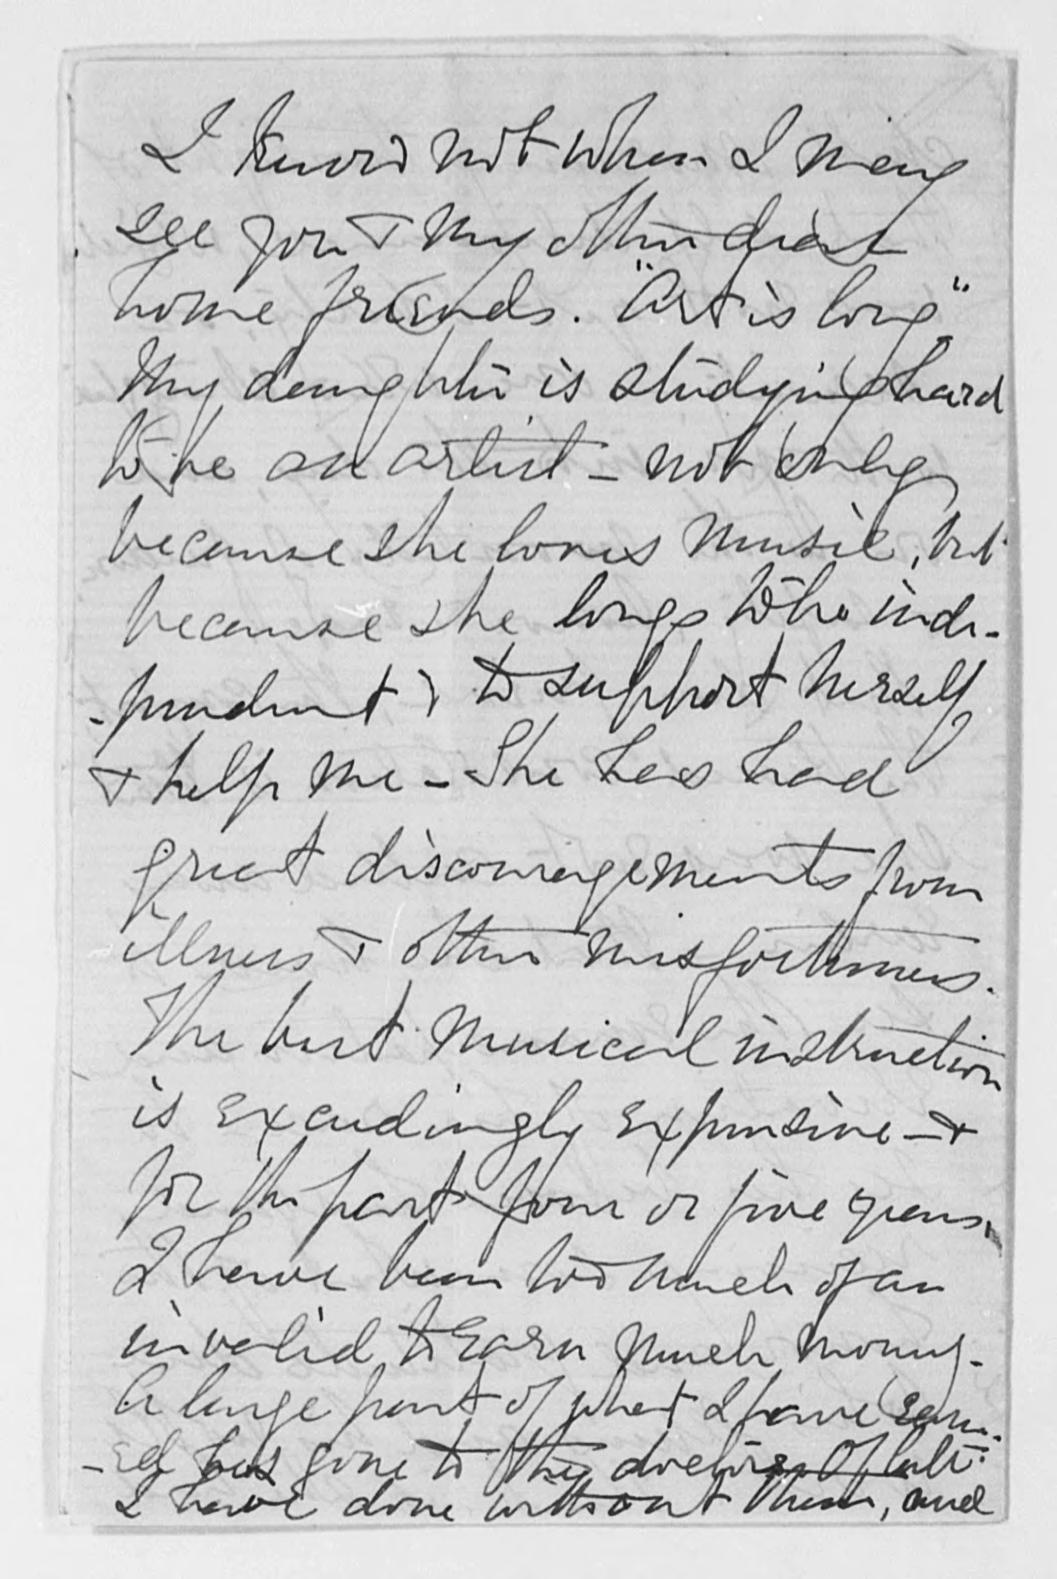 I know not when I may
see you & my other dear
home friends. "Art is long."
My daughter is studying hard
to be an artist - not only
because she loves music, but
because she longs to be inde-
-pendent & to support herself
& help me - She has had
great discouragements from
illness & other misfortunes.
The best musical instruction
is exceedingly expensive - &
for the past four or five years,
I have been too much of an
invalid to earn much money -
A large part of what I have earn-
-ed has gone to the doctors. Of late
I have done without them, and